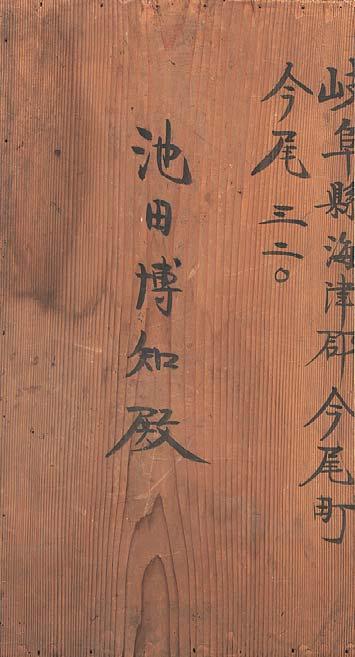 岐阜縣海津郡今尾町
今尾三二〇
池田博知殿